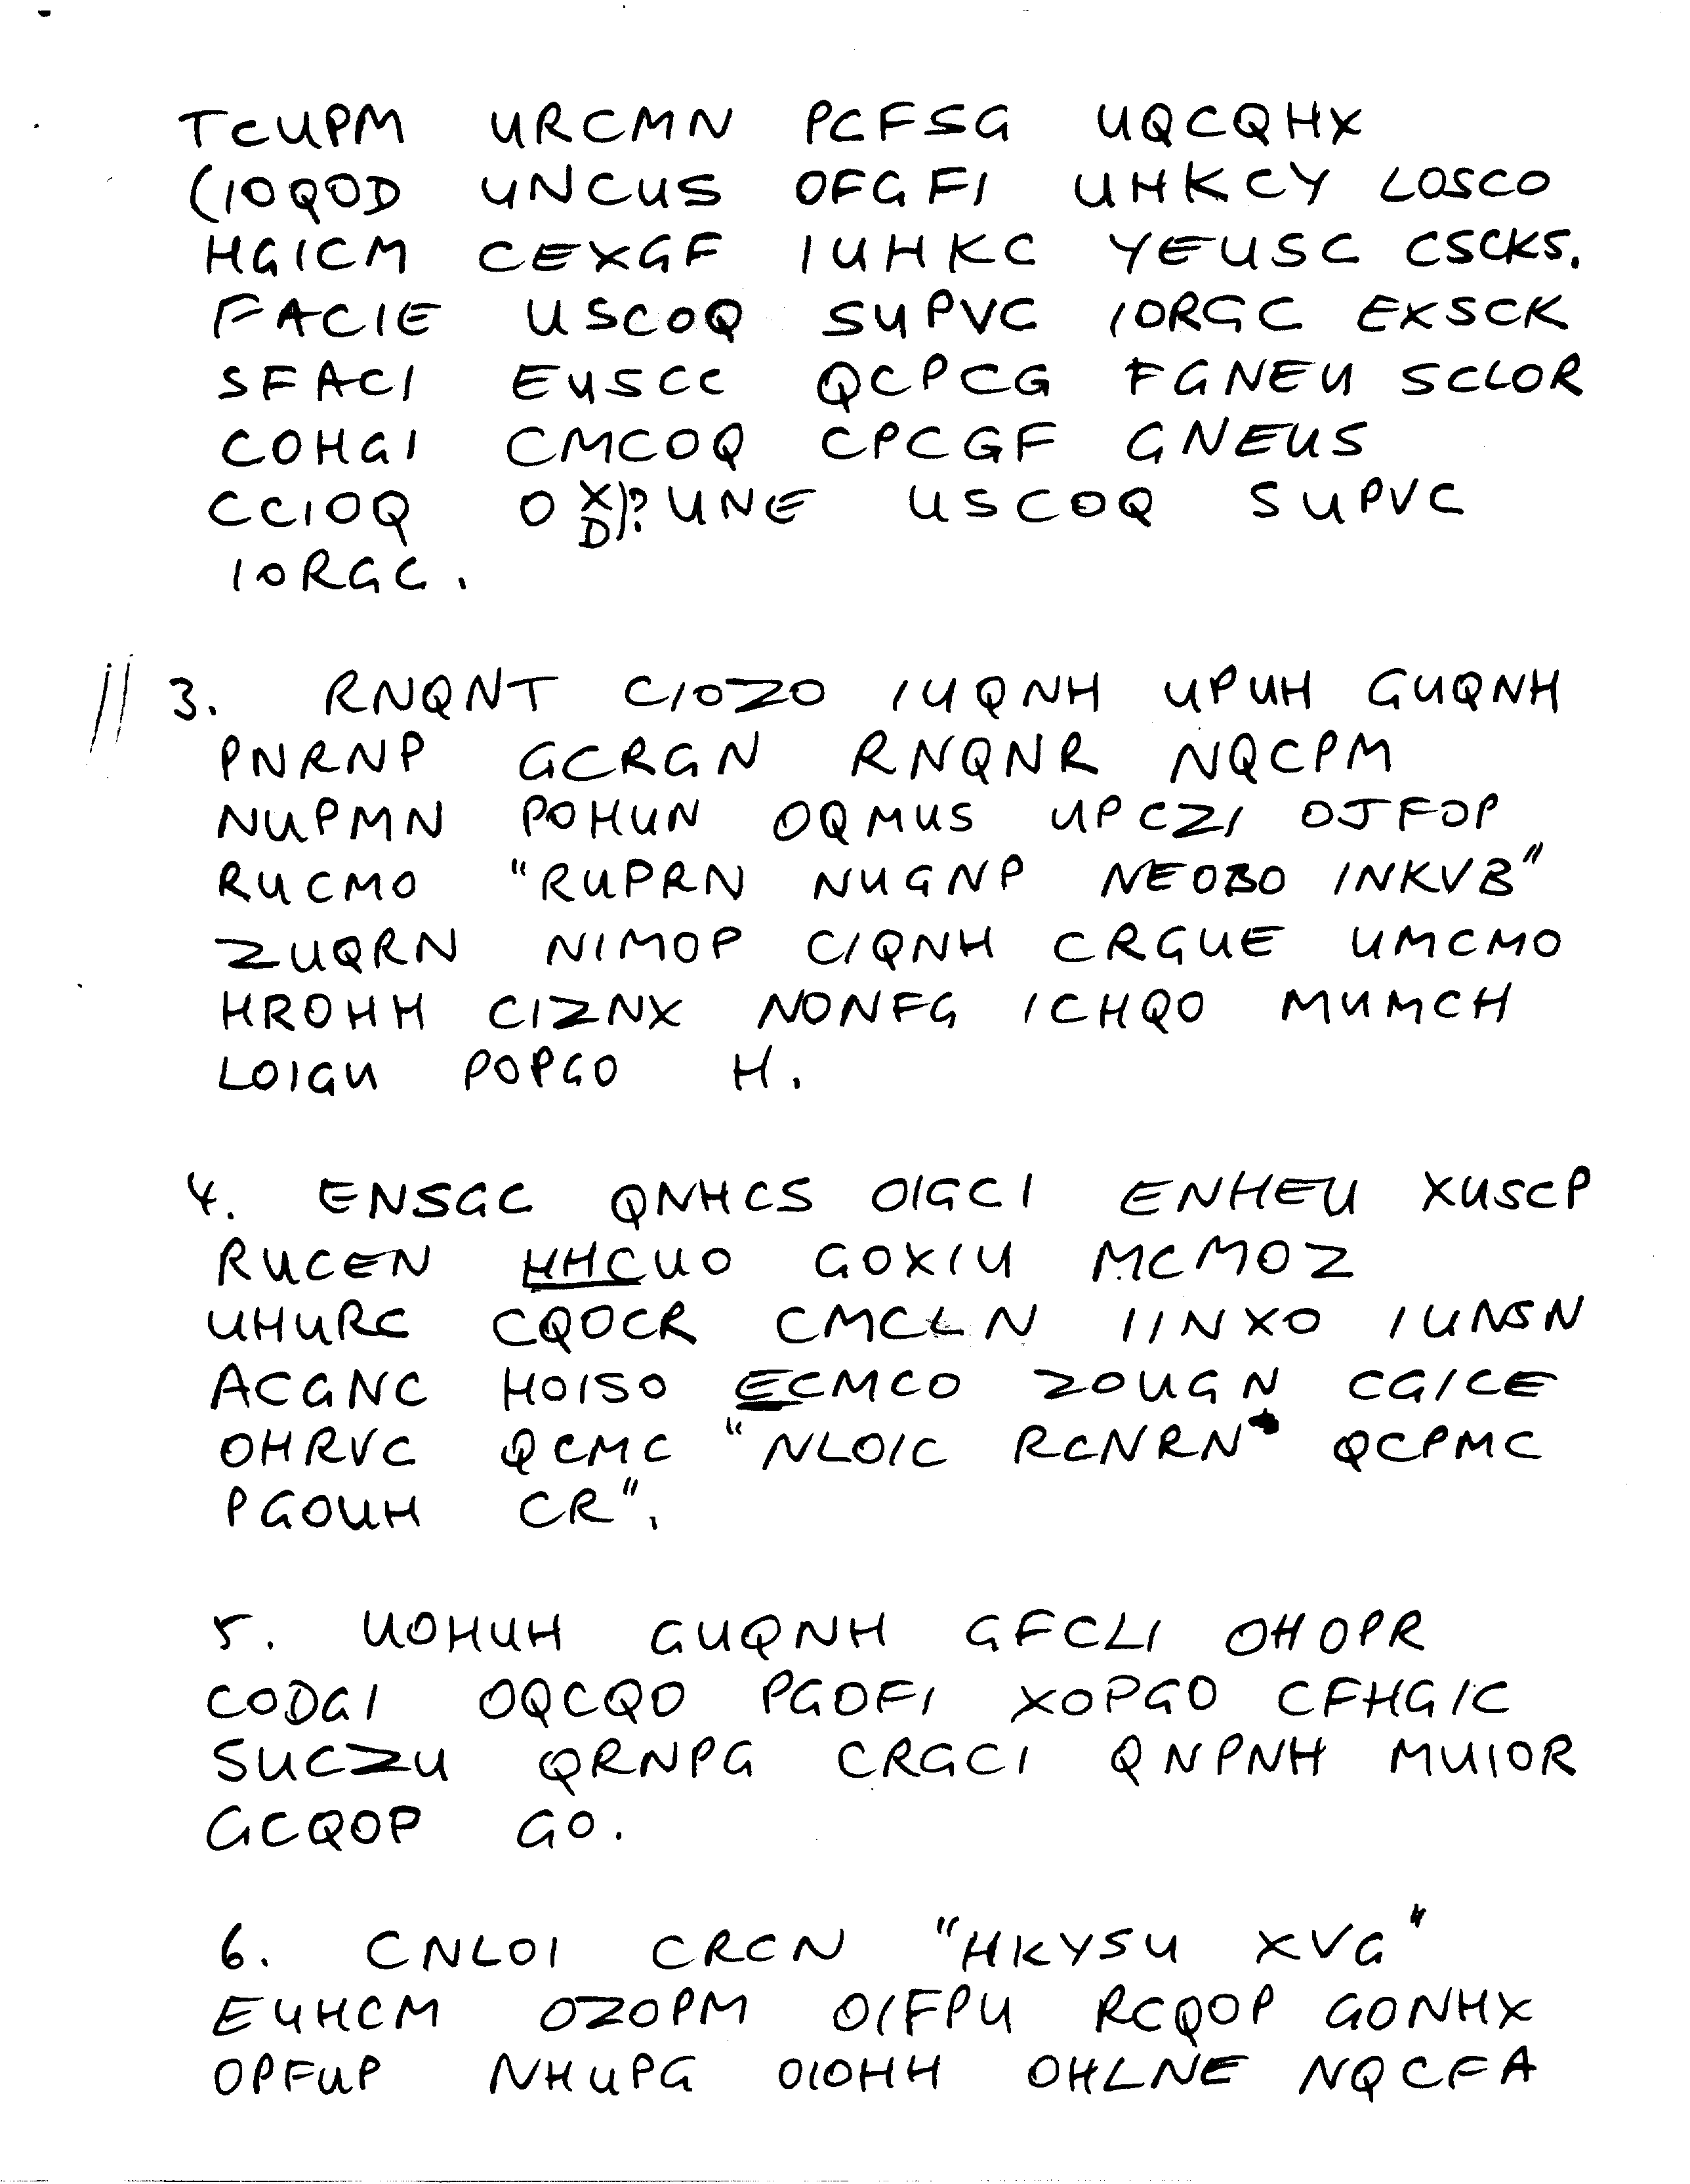 TCUPM URCMN PCFSG UQCQHX
(IOQOD UNCUS OFGFI UHKCY LOSCO
HGICM CEXGF IUHKC YEUSC CSCKS.
FACIE USCOQ SUPVC IORGC EXSCK
SFACI EUSCC QCPCG FGNEU SCLOR
COHGI CMCOQ CPCGF GNEUS
CCIOQ O X/D)? UNE USCOQ SUPVC
IORGC.
// 3. RNQNT CIOZO IUQNH UPUH GUQNH
PNRNP GCRGN RNQNR NQCPM
NUPMN POHUN OQMUS UPCZI OJFOP
RUCMO "RUPRN NUGNP NEOBO INKVB"
ZUQRN NIMOP CIQNH CRGUE UMCMO
HROHH CIZNX NONFG ICHQO MUMCH
LOIGU POPGO H.
4. ENSGC QNHCS OIGCI ENHEU XUSCP
RUCEN HHCUO GOXIU MCMOZ
UHURC CQOCR CMCLN IINXO IUNSN
ACGNC HOISO ECMCO ZOUGN CGICE
OHRVC QCMC "NLOIC RCNRN QCPMC
PGOUH CR".
5. UOHUH GUQNH GFCLI OHOPR
CODGI OQCQO PGOFI XOPGO CFHGIC
SUCZU QRNPG CRGCI QNPNH MUIOR
GCQOP GO.
6. CNLOI CRCN "HKYSU XVG"
EUHCM OZOPM OIFPU RCQOP GONHX
OPFUP NHUPG OIOHH OHLNE NQCFA